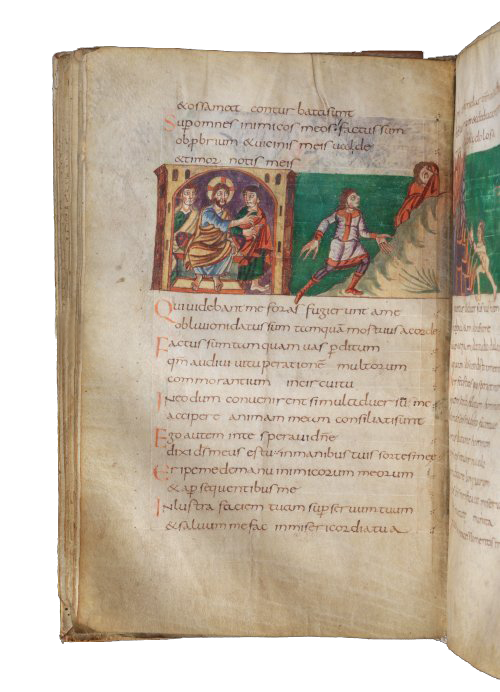 & ossa mea conturbata sunt
Sup omnes inimicos meos factus sum
obprbrium & uicinis meis ualde
& timor notis meis
Qui uidebant me foras fugierunt a me
obliuioni datus sum tamquā mortuus a corde
Factus sum tamquam uas pditum
qm̄ audiui uituperationē multorum
commorantium in circuitu
In eo dum conuenirent simul aduersū me
accipere animam meam consiliati sunt
Ego autem in te speraui dn̄e
dixi ds̄ meus es tu in manibus tuis sortes meę
Eripe me de manu inimicorum meorum
& a psequentibus me
Inlustra faciem tuam sup seruum tuum
& saluum me fac in misericordia tua